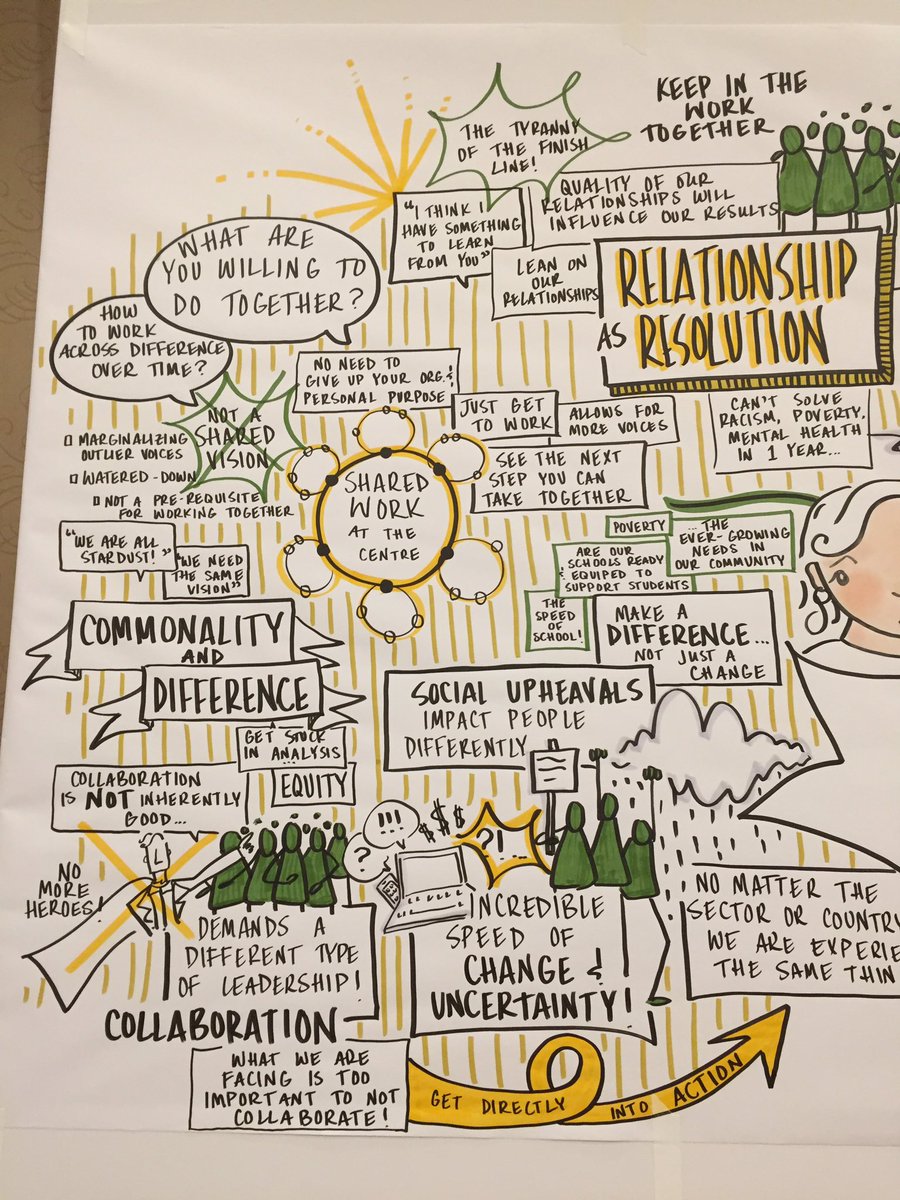 KEEP IN THE
WORK
TOGETHER
THE TYRANNY
OF THE FINISH
LINE!
"I THINK I
HAVE SOMETHING
TO LEARN
FROM YOU"
QUALITY OF OUR
RELATIONSHIPS WILL
INFLUENCE OUR RESULTS
LEAN ON
OUR
RELATIONSHIPS
RELATIONSHIP
AS RESOLUTION
WHAT ARE
YOU WILLING TO
DO TOGETHER?
HOW
TO WORK
ACROSS DIFFERENCE
OVER TIME?
NOT A
SHARED
VISION
MARGINALIZING
OUTLIER VOICES
WATERED-DOWN
NOT A PRE-REQUISITE
FOR WORKING TOGETHER
NO NEED TO
GIVE UP YOUR ORG. &
PERSONAL PURPOSE
SHARED
WORK
AT THE
CENTRE
JUST GET
TO WORK
ALLOWS FOR
MORE VOICES
SEE THE NEXT
STEP YOU CAN
TAKE TOGETHER
CAN'T SOLVE
RACISM, POVERTY,
MENTAL HEALTH
IN 1 YEAR...
POVERTY
...THE
EVER-GROWING
NEEDS IN
OUR COMMUNITY
ARE OUR
SCHOOLS READY
& EQUIPED TO
SUPPORT STUDENTS
THE
SPEED
OF
SCHOOL!
MAKE A
DIFFERENCE...
NOT JUST A
CHANGE
"WE ARE ALL
STARDUST!"
"WE NEED
THE SAME
VISION"
COMMONALITY
AND
DIFFERENCE
GET STUCK
IN ANALYSIS
...
EQUITY
SOCIAL UPHEAVALS
IMPACT PEOPLE
DIFFERENTLY
COLLABORATION
IS NOT INHERENTLY
GOOD...
NO
MORE
HEROES!
DEMANDS A
DIFFERENT TYPE
OF LEADERSHIP!
COLLABORATION
WHAT WE ARE
FACING IS TOO
IMPORTANT TO NOT
COLLABORATE!
?
!!!
$$$
?!...
INCREDIBLE
SPEED OF
CHANGE &
UNCERTAINTY!
NO MATTER THE
SECTOR OR COUNTRY
WE ARE EXPERIE
THE SAME THIN
GET DIRECTLY INTO ACTION